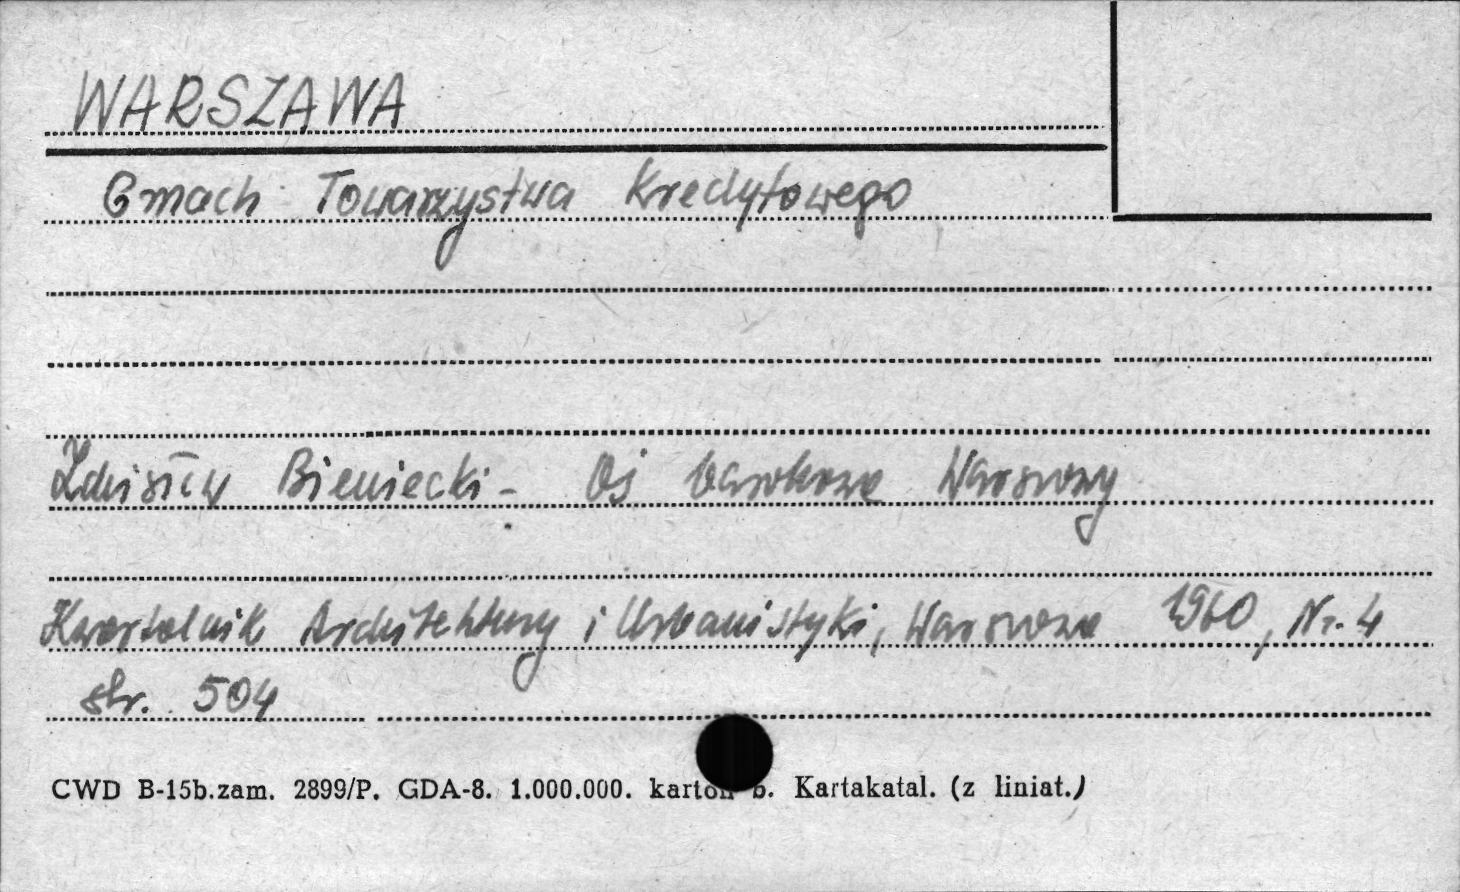 WARSZAWA
Gmach Towarzystwa Kredytowego
Zdzisław Bieniecki - Oś barokowa Warszawy
Kwartalnik Architektury i Urbanistyki, Warszawa 1960, Nr. 4
str. 504
CWD B-15b.zam. 2899/P. GDA-8. 1.000.000. karton b. Kartakatal. (z liniat.)